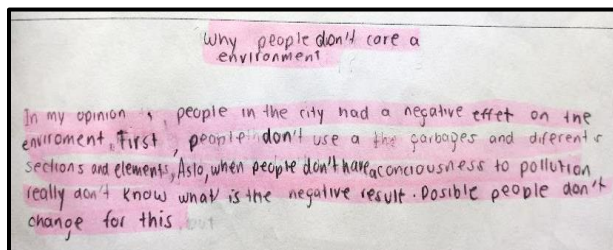 why people don't care a
environment
In my opinion , people in the city had a negative effet on the
enviroment, First , people don't use a the garbages and diferents
sections and elements, Aslo, when people don't have a conciousness to pollution
really don't know what is the negative result. Posible people don't
change for this